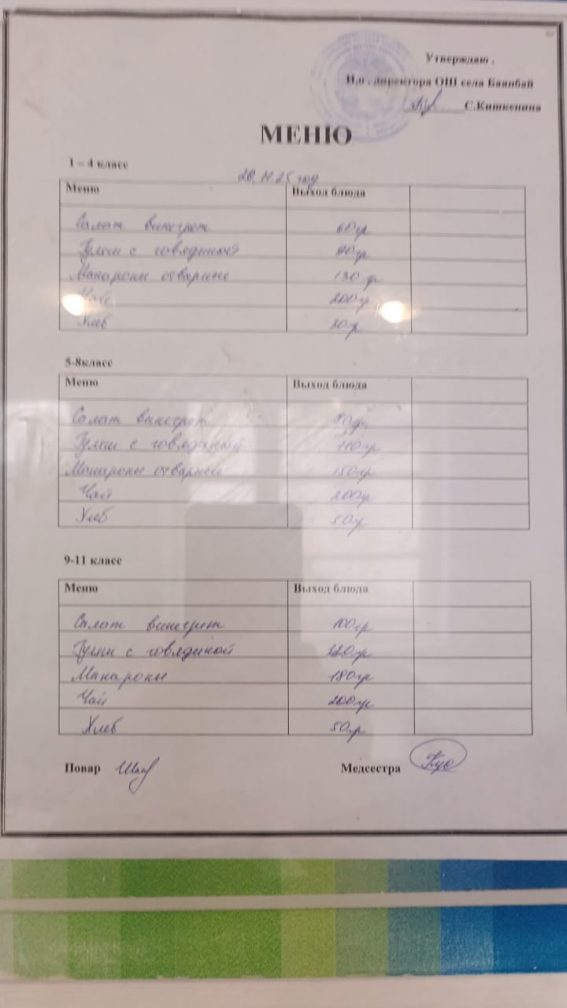 Утверждаю .
И.о . директора ОШ села Баянбай
С.Кишкенина
МЕНЮ
1 – 4 класс
20.11.25 год
Меню Выход блюда
Салат винегрет 60гр
Гуляш с говядиной 90гр
Макароны отварные 130 гр
Чай 200гр
Хлеб 30гр
5-8класс
Меню Выход блюда
Салат винегрет 80гр
Гуляш с говядиной 110гр
Макароны отварные 150гр
Чай 200гр
Хлеб 50гр
9-11 класс
Меню Выход блюда
Салат винегрет 100гр
Гуляш с говядиной
Макароны 180гр
Чай 200гр
Хлеб 50гр
Повар Медсестра